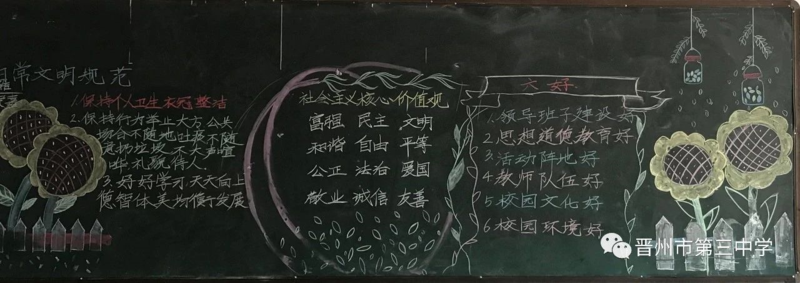 日常文明规范
1.保持个人卫生衣冠整洁
2.保持行为举止大方公共
场合不随地吐痰不随
地扔垃圾不大声喧
哗礼貌待人
3.好好学习天天向上
德智体美均衡发展
社会主义核心价值观
富强 民主 文明
和谐 自由 平等
公正 法治 爱国
敬业 诚信 友善
六好
1.领导班子建设好
2思想道德教育好
3活动阵地好
4教师队伍好
5校园文化好
6校园环境好
晋州市第三中学